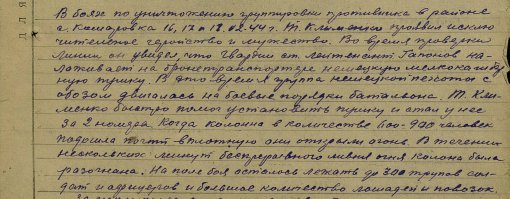 В боях по уничтожению группировки противника в районе
с. Комаровка 16, 17 и 18.02.44 г. т. Клименко проявил исклю
чительное геройство и мужество. Во время проверки
линии он увидел, что гвардии ст. лейтенант на-
лаживает на бронетранспортере немецкую мелкокалибер
ную пушку. В это время группа немецкой пехоты с
обозом двигалась на боевые порядки батальона. т. Кли-
менко быстро помог установить пушку и стал у нее
за 2 номера. Когда колонна в количестве 800-900 человек
подошла почти вплотную они открыли огонь. В течении
нескольких минут беспрерывного ливня огня колонна была
разогнана. На поле боя осталось лежать до 300 трупов сол-
дат и офицеров и большое количество лошадей и повозок.